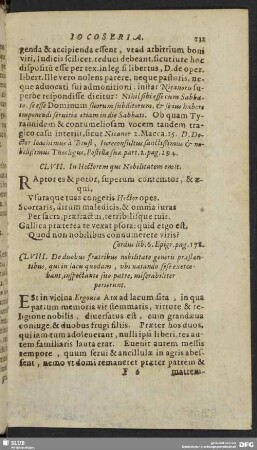 IOCOSERIA. 232
genda & accipienda essent, vtad arbitrium boni
viri, Iudicis scilicet, reduci debeant, sicut iure hoc
dispositũ esse per tex. in leg. si libertus, D. de oper.
libert. Ille vero nolens parere, neque pastoris, ne-
que aduocati sui admonitioni, instar Nicanoris su-
perbe respondisse dicitur: Nihil sibi esse cum Sabba-
to, se esse Dominum suorum subditorum, & se ius habere
imponendi seruitia etiam in die Sabbati. Ob quam Ty-
rannidem & contumeliosam vocem tandem tra-
gico casu interiit, sicut Nicanor 2. Macca. 15. D. Do-
ctor Ioachimus à Beust, Iureconsultus sanctissimus &
nobilissimus Theologus, Postillæ suæ part. 2. pag. 294.
CLVII. In Hectorem qui Nobilitatem emit.
RAptor es & potor, superum contemtor, & æ-
qui,
Vsuraque tuas congeris Hector opes.
Scortaris, dirum maledicis, & omnia iuras
Per sacra, præfractus, terribilisque tuis.
Gallica præterea te vexat psora: quid ergo est,
Quod non nobilibus connumerere viris?
Cordus lib. 6. Epigr. pag. 178.
CLVIII. De duobus fratribus nobilitate generis præstan-
tibus, qui in lacu quodam, vbi natando sese exerce-
bant, inspectante suo patre, miserabiliter
perierunt.
ESt in vicina Ergouia Arx ad lacum sita, in qua
patrum memoria vir stemmatis, virtute & re-
ligione nobilis, diuersatus est, cum grandæua
coniuge, & duobus frugi filiis. Præter hos duos,
qui iam tum adoleuerant, nulli ipsi liberi, res au-
tem familiaris lauta erat. Euenit autem messis
tempore, quum serui & ancillulæ in agris abes-
sent, nemo vt domi remaneret præter patrem &
F 6 matrem
SLUB